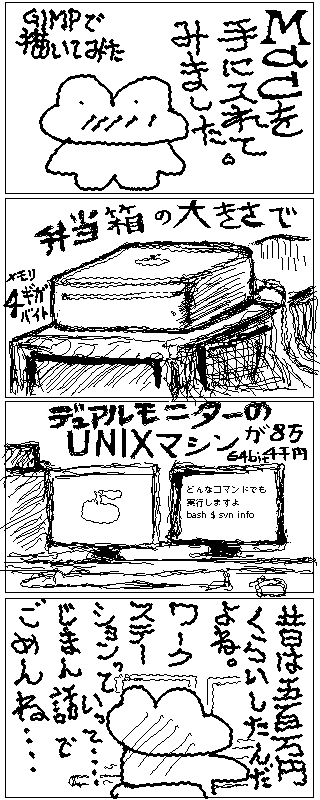 Macを
手に入れて
みました。
GIMPで
描いてみた
弁当箱の大きさで
メモリ
4ギガ
バイト
デュアルモニターの
UNIXマシンが8万
64bit4千円
どんなコマンドでも
実行しますよ
bash $ svn info
昔は五百万円
くらいしたんだ
よね。
ワーク
ステー
ションって
いって・・・・
じまん話で
ごめんね・・・・